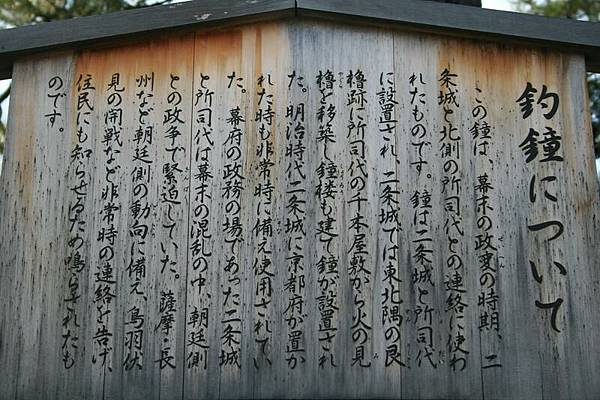 釣鐘について
この鐘は、幕末の政変の時期、二
条城と北側の所司代との連絡に使わ
れたものです。鐘は二条城と所司代
に設置され、二条城では東北隅の艮
櫓跡に所司代の千本屋敷から火の見
櫓を移築し鐘楼も建て鐘が設置され
た。明治時代二条城に京都府が置か
れた時も非常時に備え使用されてい
た。幕府の政務の場であった二条城
と所司代は幕末の混乱の中、朝廷側
との政争で緊迫していた。薩摩・長
州など朝廷側の動向に備え、鳥羽伏
見の開戦など非常時の連絡を告げ、
住民にも知らせるため鳴らされたも
のです。